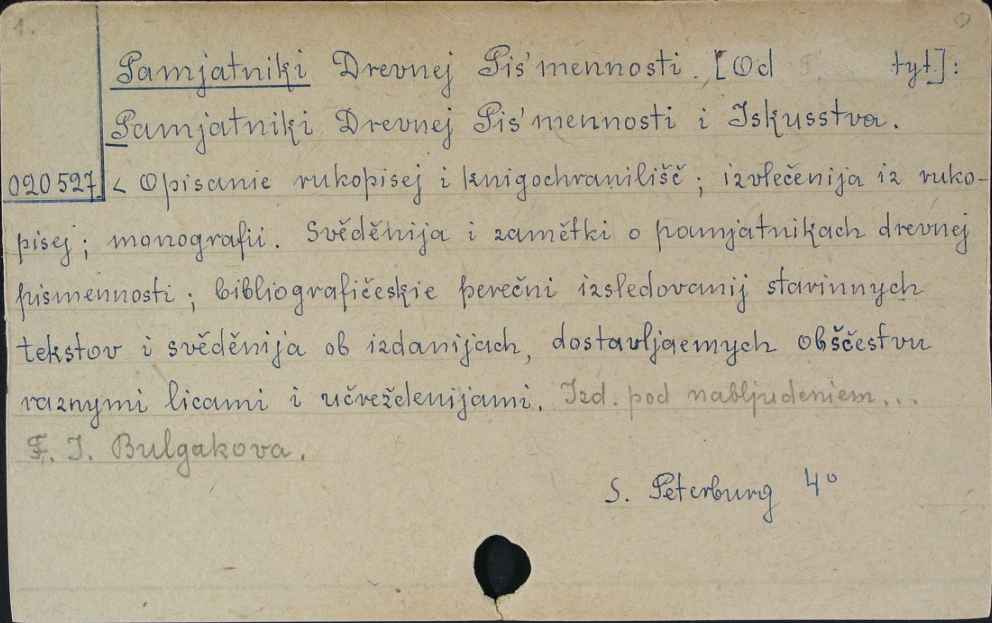 1.
Pamjatniki Drevnej Pis'mennosti. [Od tyt.]:
Pamjatniki Drevnej Pis'mennosti i Iskusstva.
020527 < Opisanie rukopisej i knigochranilišč; izvlečenija iz ruko-
pisej; monografii. Svěděnija i zamětki o pamjatnikach drevnej
pismennosti; bibliografičeskie perečni izsledovanij starinnych
tekstov i svěděnija ob izdanijach, dostavljaemych obščestvu
raznymi licami i učreždenijami. Izd. pod nabljudeniem...
F. I. Bulgakova.
S. Peterburg 4°